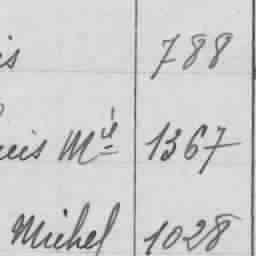 is 788
uis Mie 1367
Michel 1028